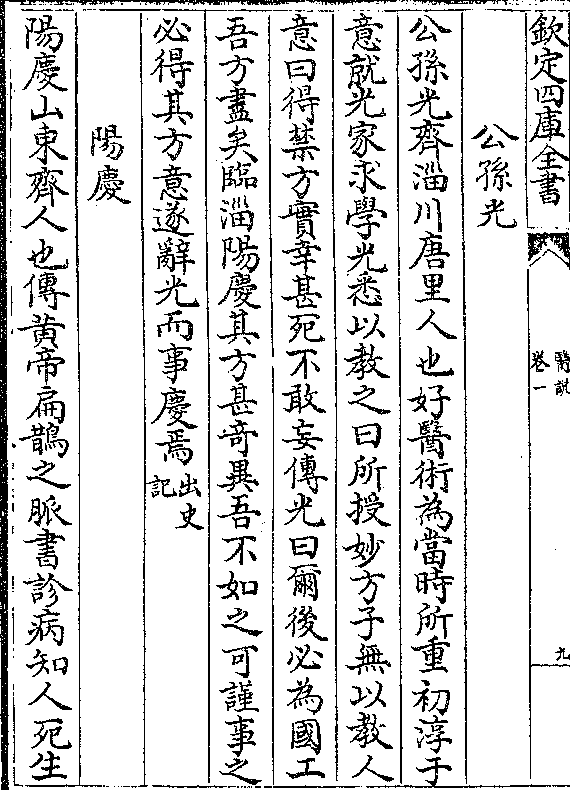 欽定四庫全書
醫説
卷一
九
公孫光
公孫光齊淄川唐里人也好醫術為當時所重初淳于
意就光家求學光悉以教之曰所授妙方子無以教人
意曰得禁方實幸甚死不敢妄傳光曰爾後必為國工
吾方盡矣臨淄陽慶其方甚奇異吾不如之可謹事之
必得其方意遂辭光而事慶焉出史記
陽慶
陽慶山東齊人也傳黄帝扁鵲之脈書診病知人死生